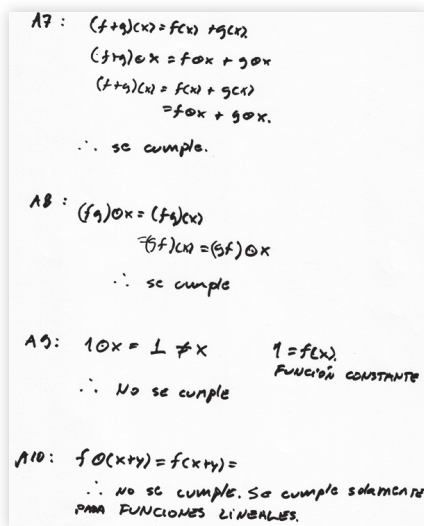 A7: (f+g)(x) = f(x) + g(x).
(f+g)⊙x = f⊙x + g⊙x
(f+g)(x) = f(x) + g(x)
= f⊙x + g⊙x.
∴ se cumple.
A8: (fg)⊙x = (fg)(x)
=(gf)(x) = (gf)⊙x
∴ se cumple
A9: 1⊙x = 1 ≠ x 1 = f(x).
FUNCIÓN CONSTANTE
∴ No se cumple
A10: f⊙(x+y) = f(x+y) =
∴ no se cumple. Se cumple solamente
PARA FUNCIONES LINEALES.